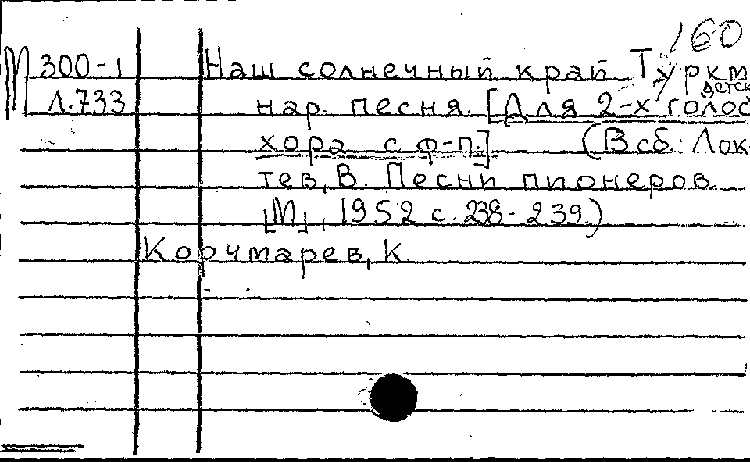 160
М 300-1 Наш солнечный край Туркм.
Л.733 нар. песня. [Для 2-х голос. детск.
хора с ф-п.] (В сб.: Лок-
тев, В. Песни пионеров.
[М], 1952 с. 238-239.)
Корчмарев, К.